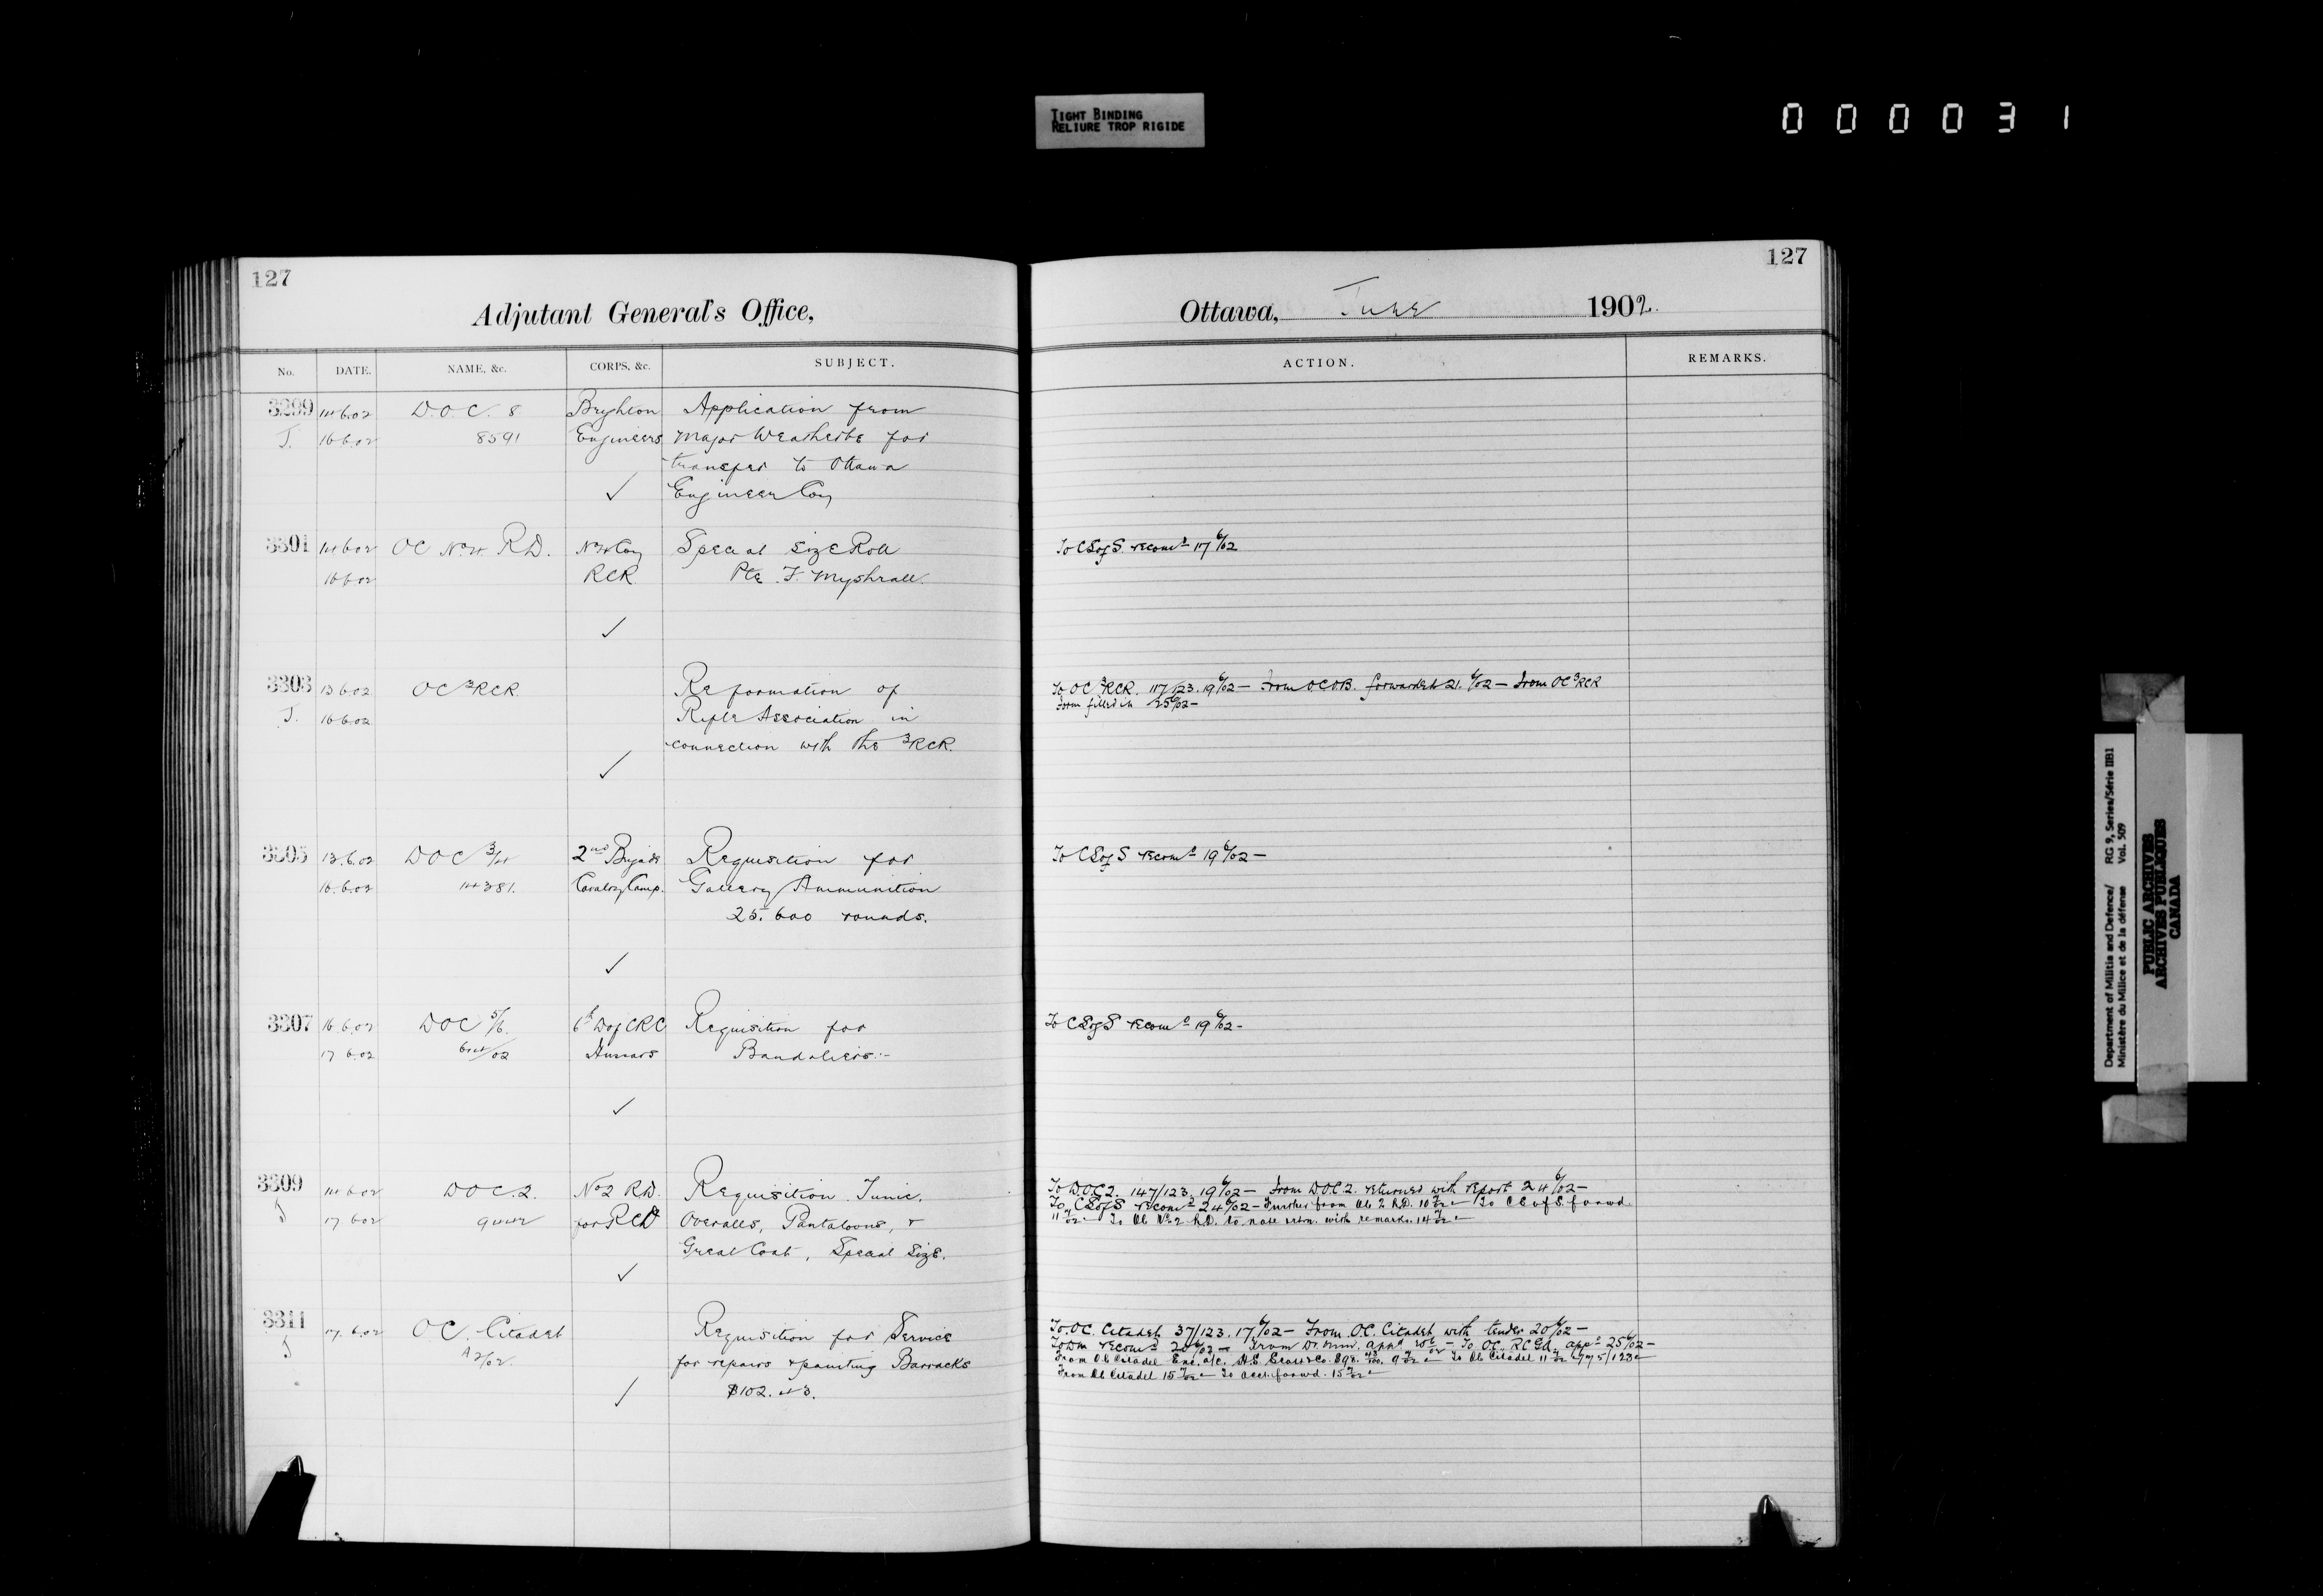 TIGHT BINDING
RELIURE TROP RIGIDE
000031
127
Adjutant General's Office,
No. DATE. NAME, &c. CORPS, &c. SUBJECT.
3299 14.6.02 D.O.C. 8 Brighton Application from
J. 16.6.02 8591 Engineers Major Weatherbe for
transfer to Ottawa
✓ Engineer Coy
3301 14.6.02 OC No 4 R.D. No 4 Coy Special Size Roll
16.6.02 RCR Pte. F. Myshrall.
✓
3303 13.6.02 OC 3RCR Reformation of
J. 16.6.02 Rifle Association in
connection with the 3RCR.
✓
3305 13.6.02 DOC 3/4 2nd Brigade Requisition for
16.6.02 14381. Cavalry Camp. Gallery Ammunition
25.600 rounds.
✓
3307 16.6.02 DOC 5/6. 6th D of CRC Requisition for
17.6.02 Hussars Bandoliers.-
✓
3309 14.6.02 DOC.2. No 2 RD. Requisition Tunic,
J 17.6.02 for RCD Overalls, Pantaloons, +
Great Coat, Special Size.
✓
3311 17.6.02 OC. Citadel Requisition for Service
J for repairs + painting Barracks
✓ $102.43.
127
Ottawa, June 1902.
ACTION. REMARKS.
To CS of S. recomd 17 6/02
To OC 3RCR. 117/123. 19 6/02 — From OCOB. forwarded 21. 6/02 — From OC 3RCR
Form filled in 25 6/02 —
To CS of S recomd 19 6/02 —
To CS of S recomd 19 6/02 -
To D.OC 2. 147/123. 19 6/02 — From DOC.2. returned with report 24 6/02 —
To CS of S recomd 24 6/02 — Further from OC 2 R.D. 10 7/02 — To CS of S. forwd.
11 7/02 — To OC No 2 R.D. to note retn. with remarks. 14 7/02 —
To OC. Citadel 37/123. 17 6/02 — From O.C. Citadel with tender 20 6/02 —
To DM recomd 20 6/02 — From D. Min. appd — To OC. RCGA. appd 25 6/02 —
From OC Citadel Enc. a/c. 9 7/02 — To OC Citadel 11 7/02
From OC Citadel 15 7/02 — To acct. forwd. 15 7/02 —
Department of Militia and Defence/ RG 9, Series/Série IIB1
Ministère du Milice et de la défense Vol. 509
PUBLIC ARCHIVES
ARCHIVES PUBLIQUES
CANADA